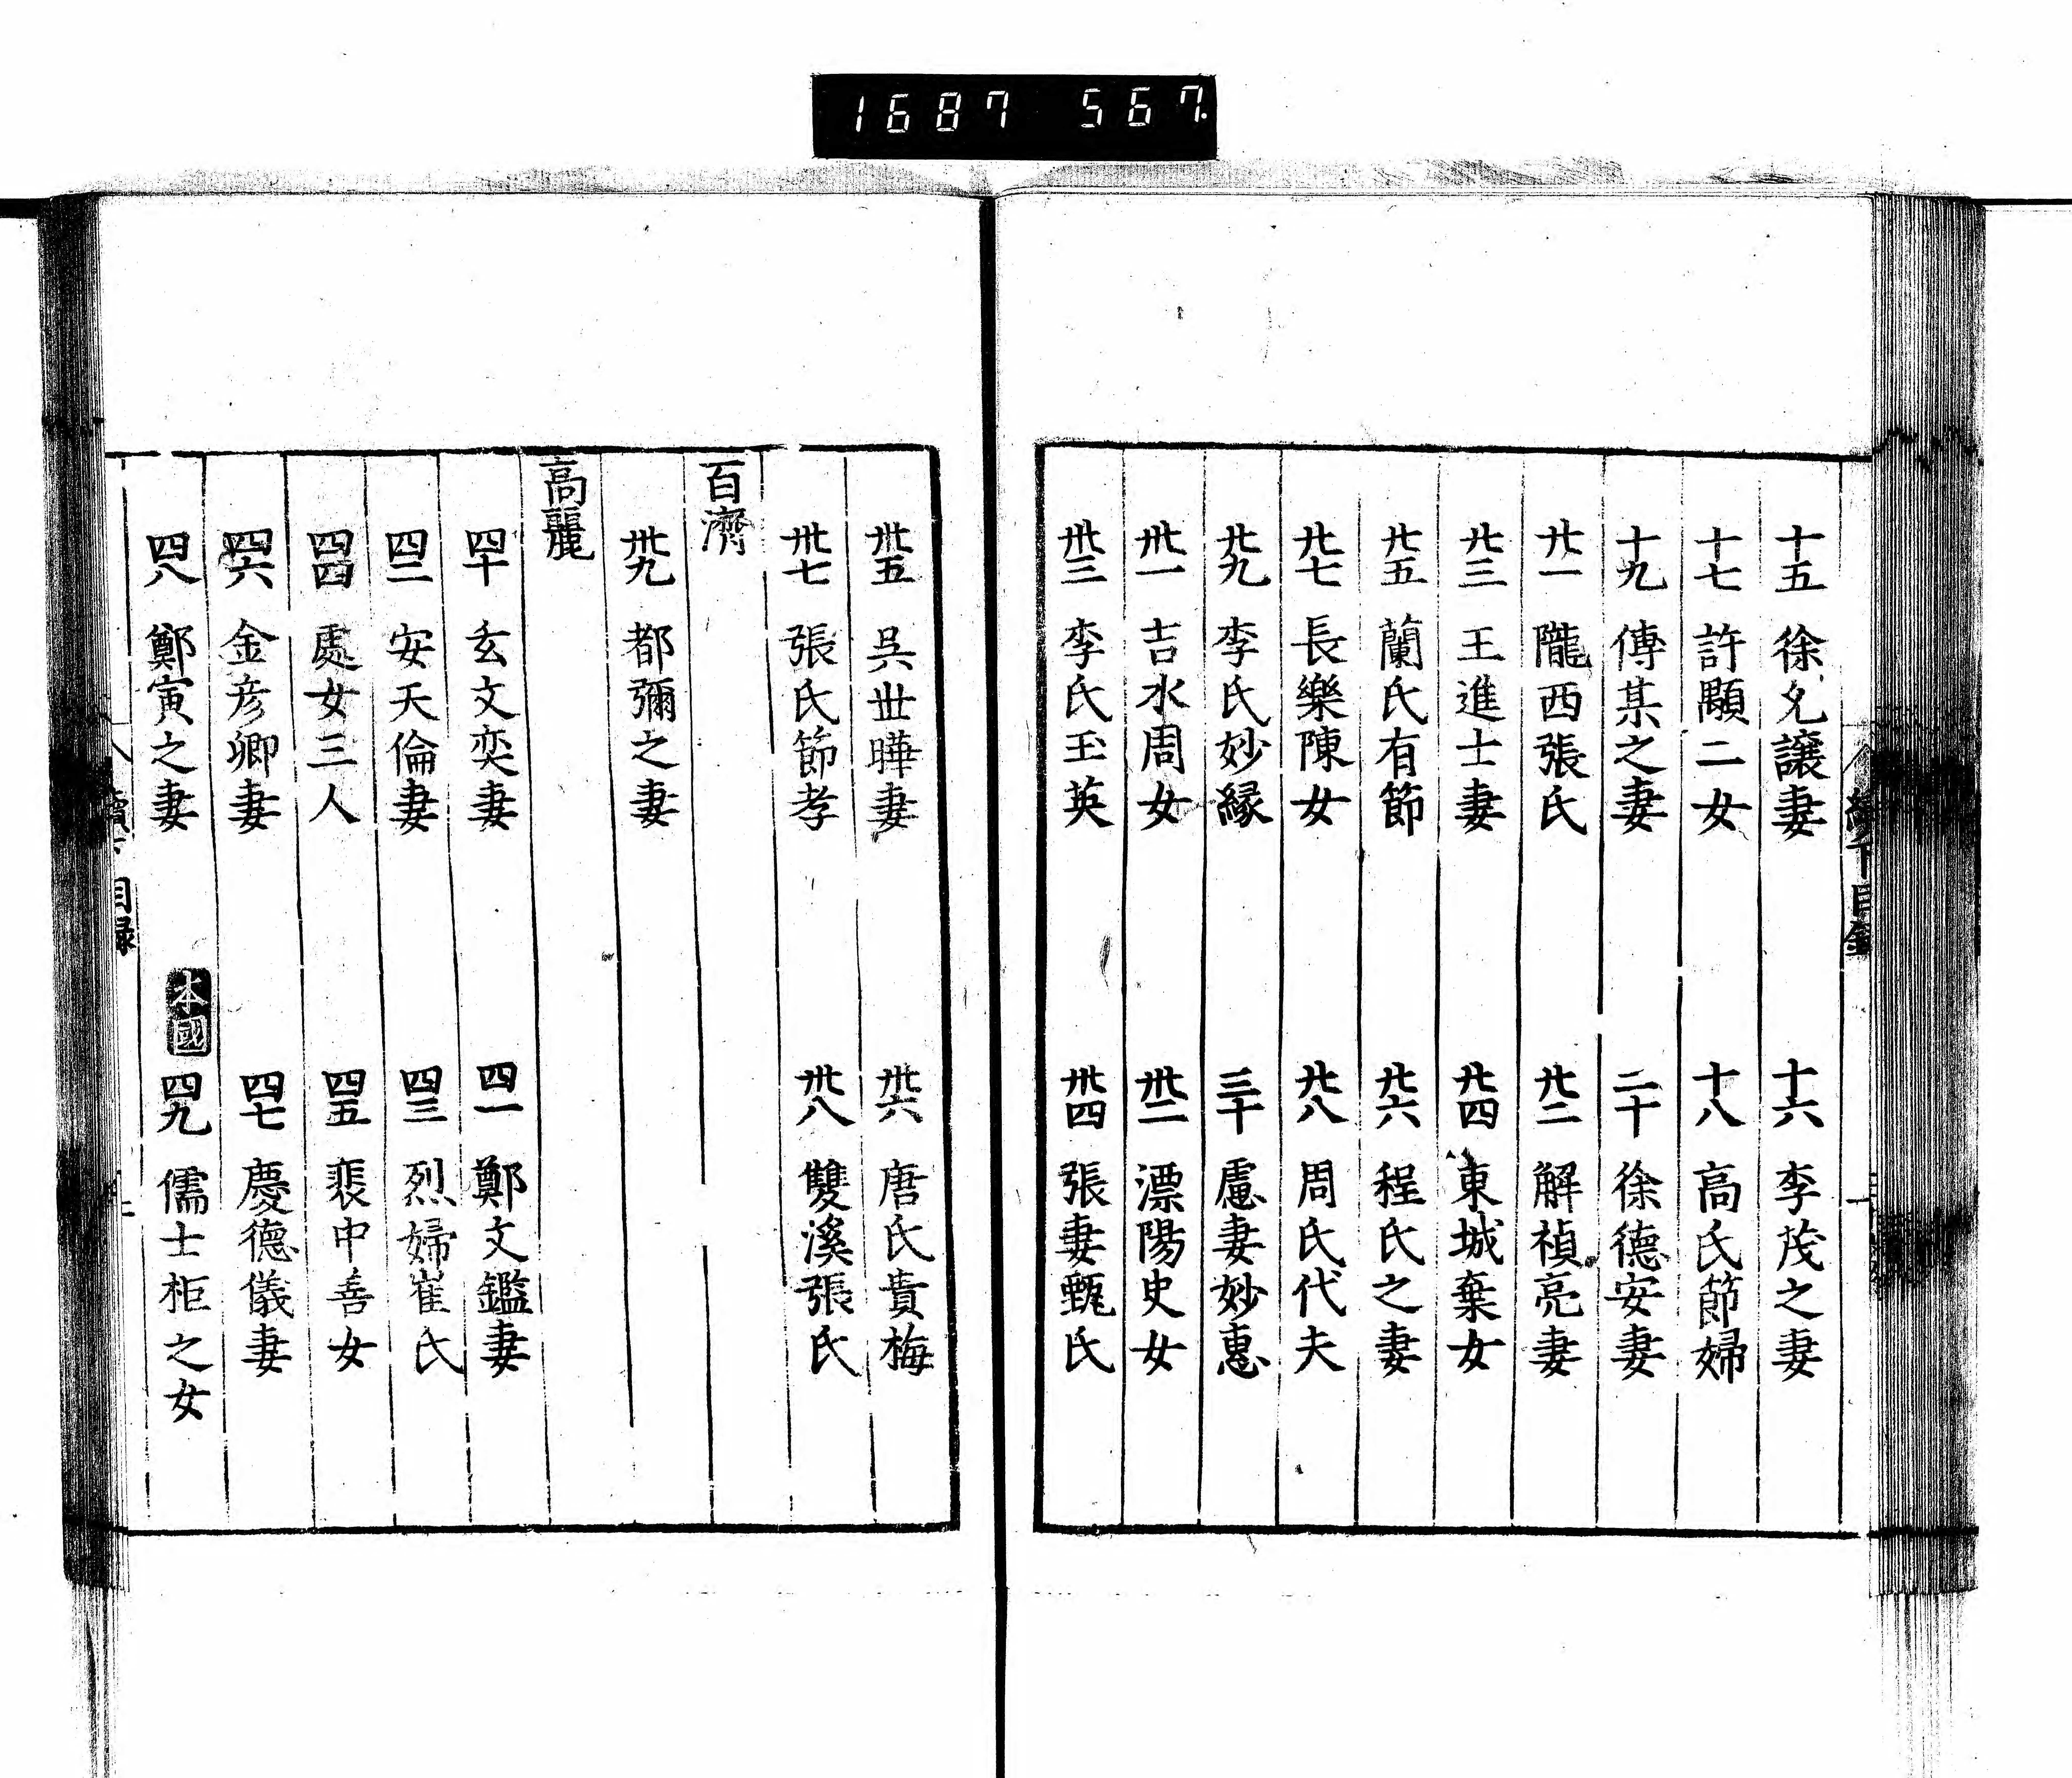 1687 567.
十五 徐允讓妻 十六 李茂之妻
十七 許顒二女 十八 高氏節婦
十九 傅某之妻 二十 徐德安妻
廿一 隴西張氏 廿二 解禎亮妻
廿三 王進士妻 廿四 東城棄女
廿五 蘭氏有節 廿六 程氏之妻
廿七 長樂陳女 廿八 周氏代夫
廿九 李氏妙緣 三十 盧妻妙惠
卅一 吉水周女 卅二 漂陽史女
卅三 李氏玉英 卅四 張妻甄氏
卅五 吳世曄妻 卅六 唐氏貴梅
卅七 張氏節孝 卅八 雙溪張氏
百濟
卅九 都彌之妻
高麗
四十 玄文奕妻 四一 鄭文鑑妻
四二 安天倫妻 四三 烈婦崔氏
四四 處女三人 四五 裴中善女
四六 金彥卿妻 四七 慶德儀妻
四八 鄭寅之妻 本國 四九 儒士柜之女
目録